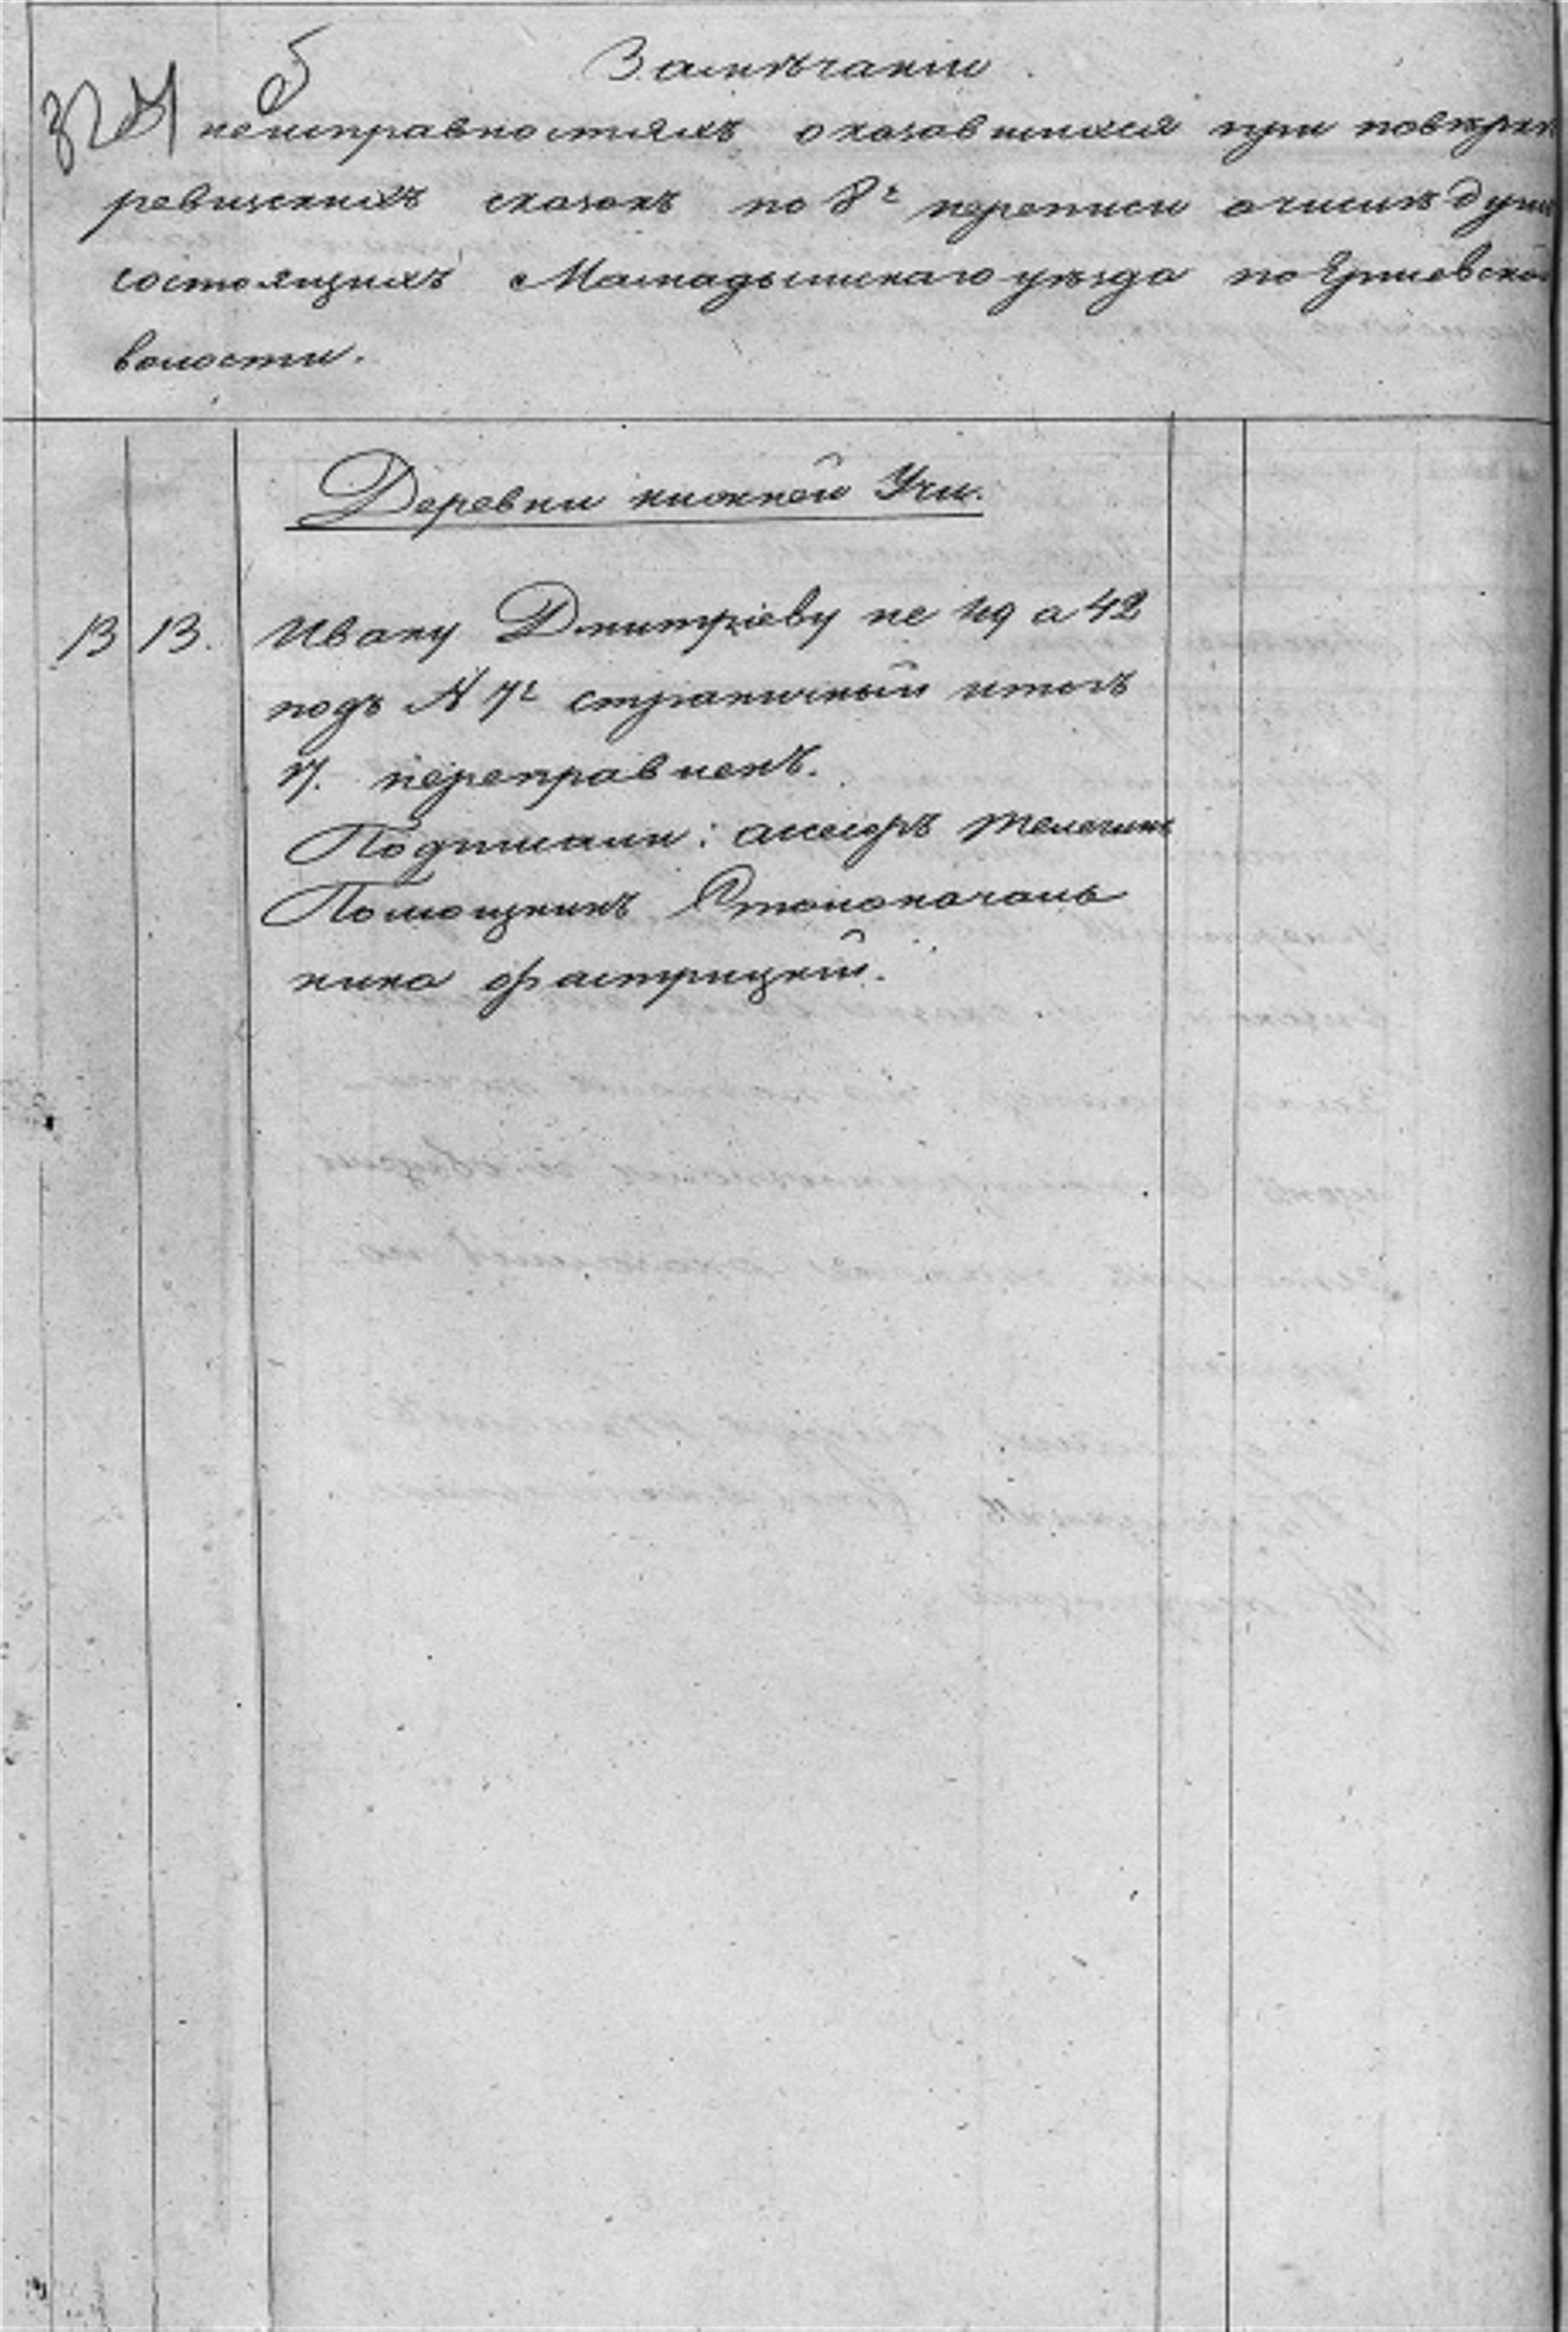 Замѣчаніи
об
неисправностяхъ оказавшихся при повѣрки
ревизскихъ сказокъ по 8й переписи очислѣ душъ
состоящихъ Мамадышскаго уѣзда по
волости.
Деревни нижней Учи.
13 13. Ивану Дмитріеву не а 42
подъ № 7й страничный итогъ
7. переправленъ.
Подписали: асесоръ Телегинъ
Помощникъ Столоначаль
ника